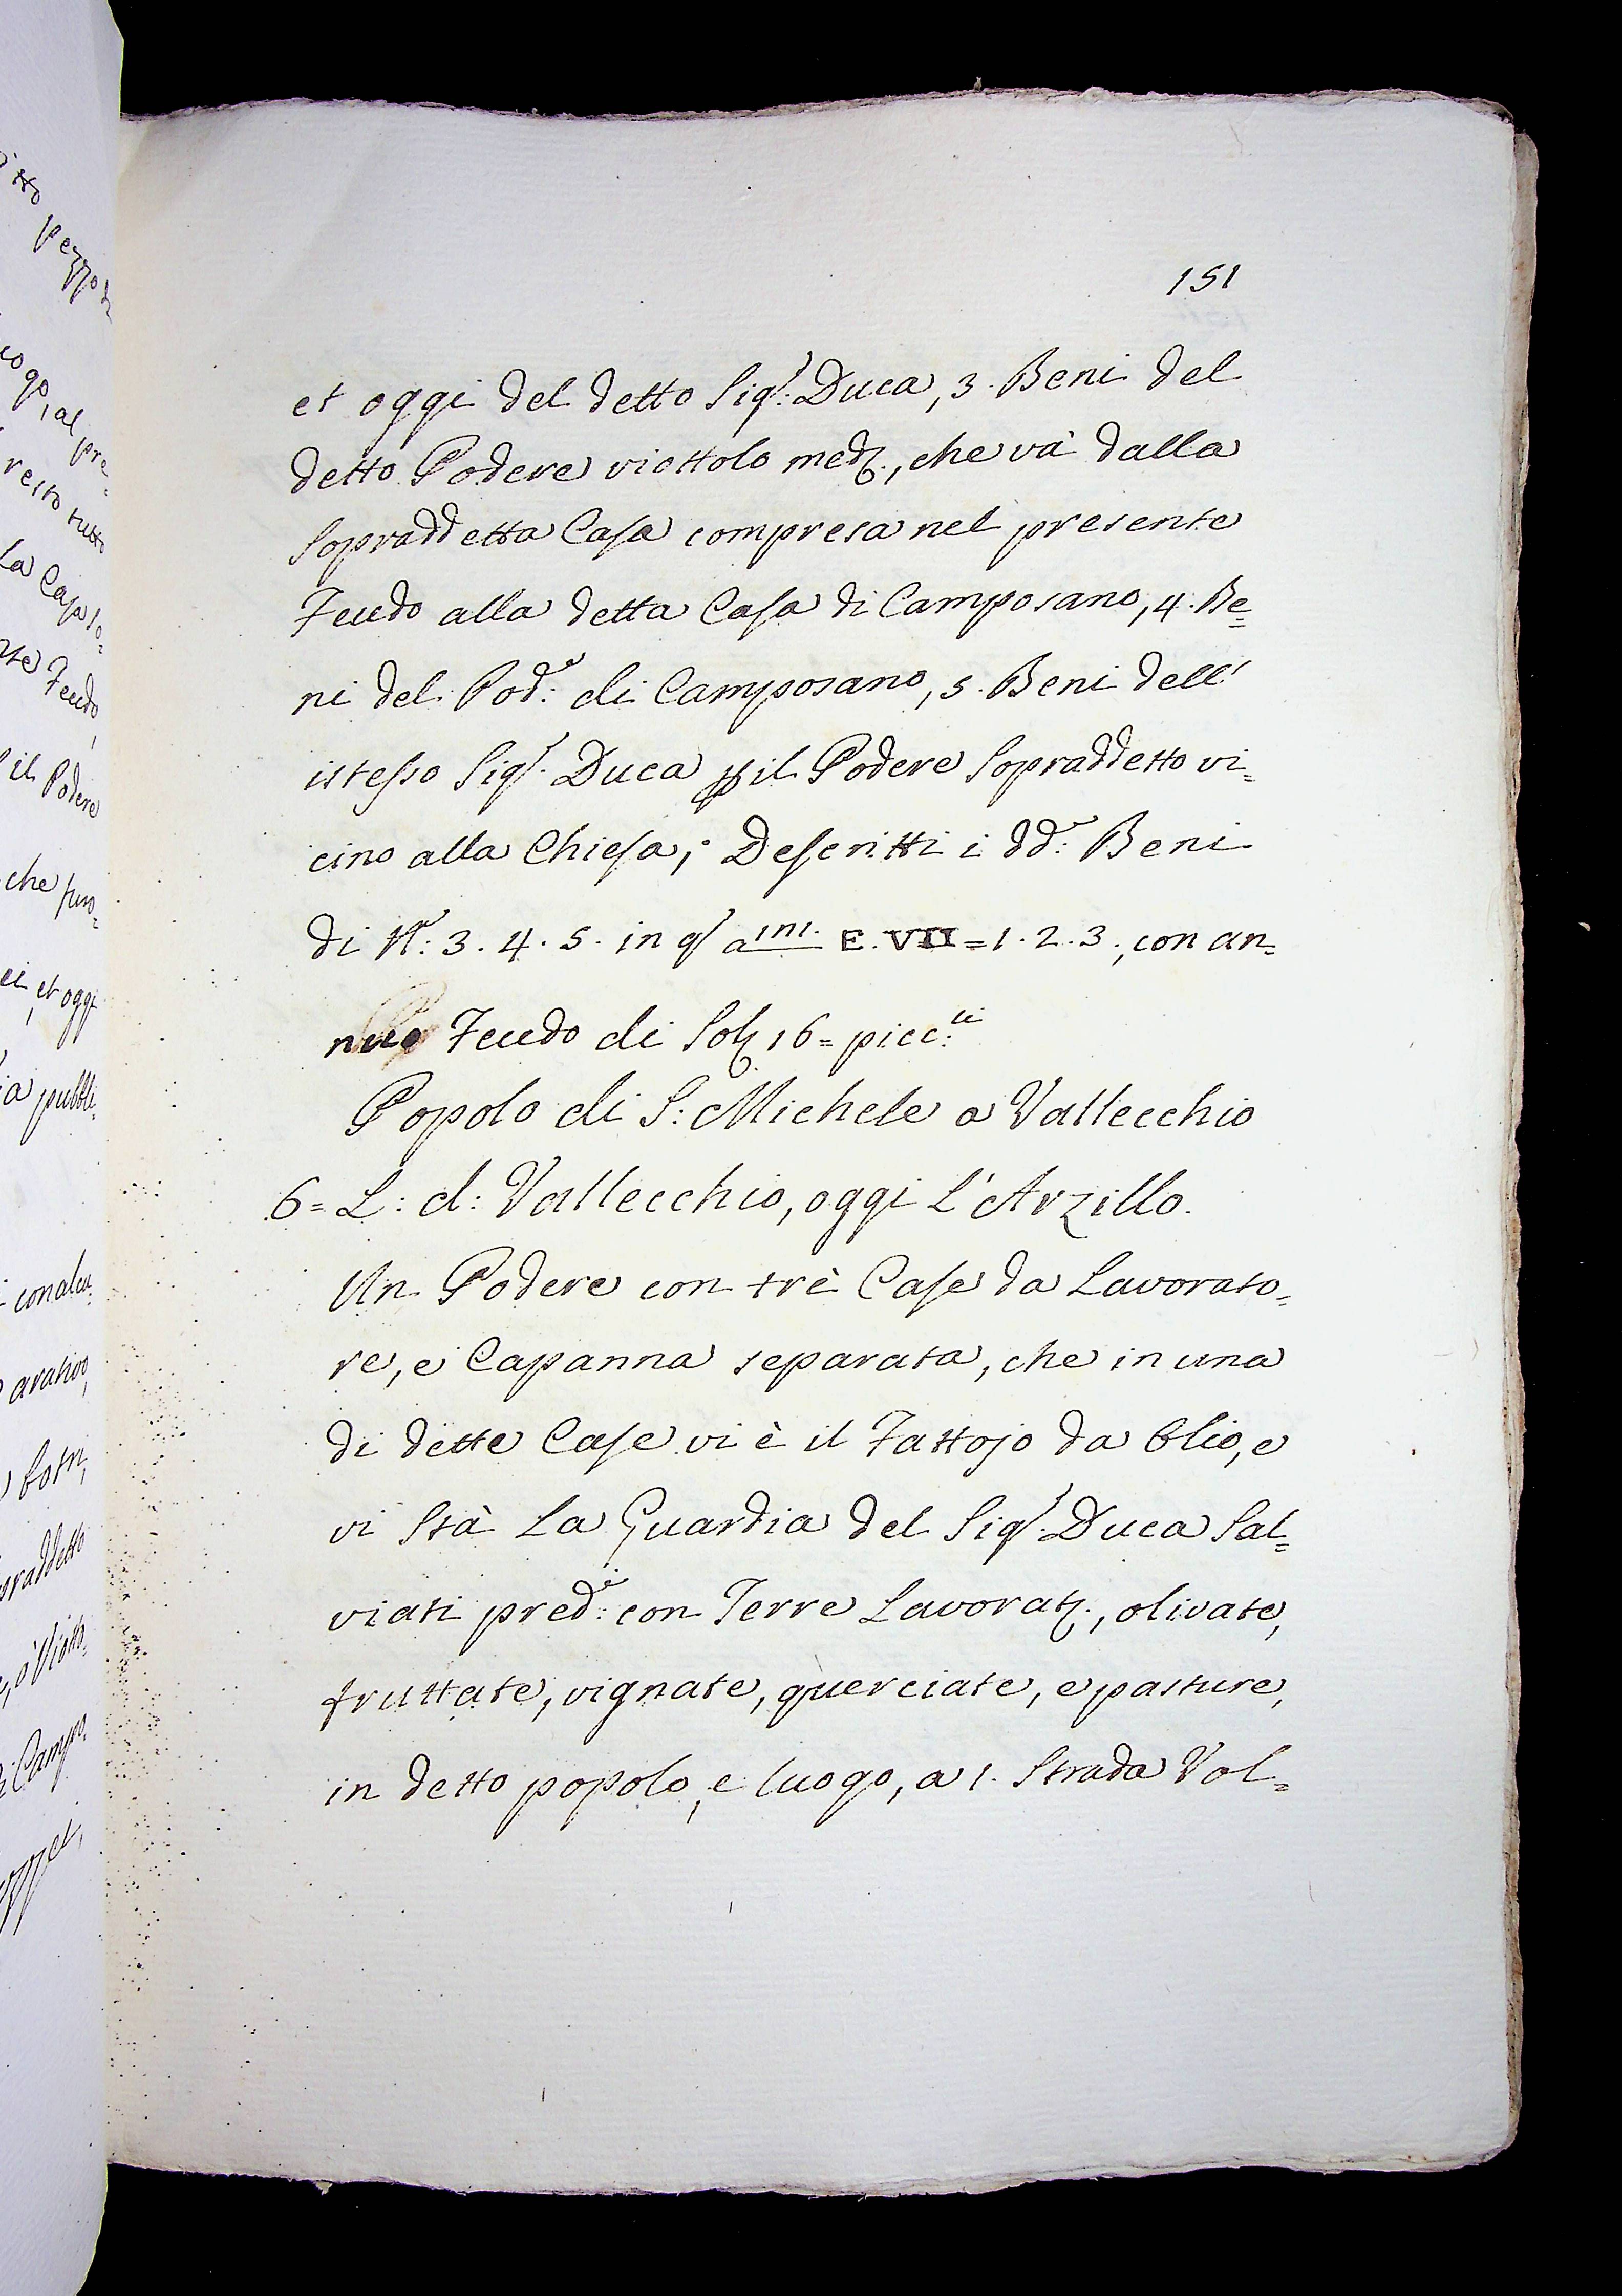 151
et oggi del detto Sig.r Duca, 3. Beni del
detto Podere viottolo med., che và dalla
Sopraddetta Casa compresa nel presente
Feudo alla detta Casa di Camposano, 4. Be=
ni del Pod.e di Camposano, 5. Beni dell'
istesso Sig.r Duca p il Podere Sopraddetto vi=
cino alla Chiesa; Descritti i dd.i Beni
di N.: 3. 4. 5. in q amni. E.VII = 1. 2. 3., con an=
nuo Feudo di Sol 16 = picc.li
Popolo di S: Michele a Vallecchio
6 = L: d: Vallecchio, oggi l'Arzillo.
Un Podere con trè Case da Lavorato=
re, e Capanna separata, che in una
di dette Case vi è il Fattojo da Olio, e
vi Stà La Guardia del Sig.r Duca Sal=
viati pred.o con Terre Lavorat., olivate,
fruttate, vignate, querciate, e pasture,
in detto popolo, e luogo, a 1. Strada Vol=